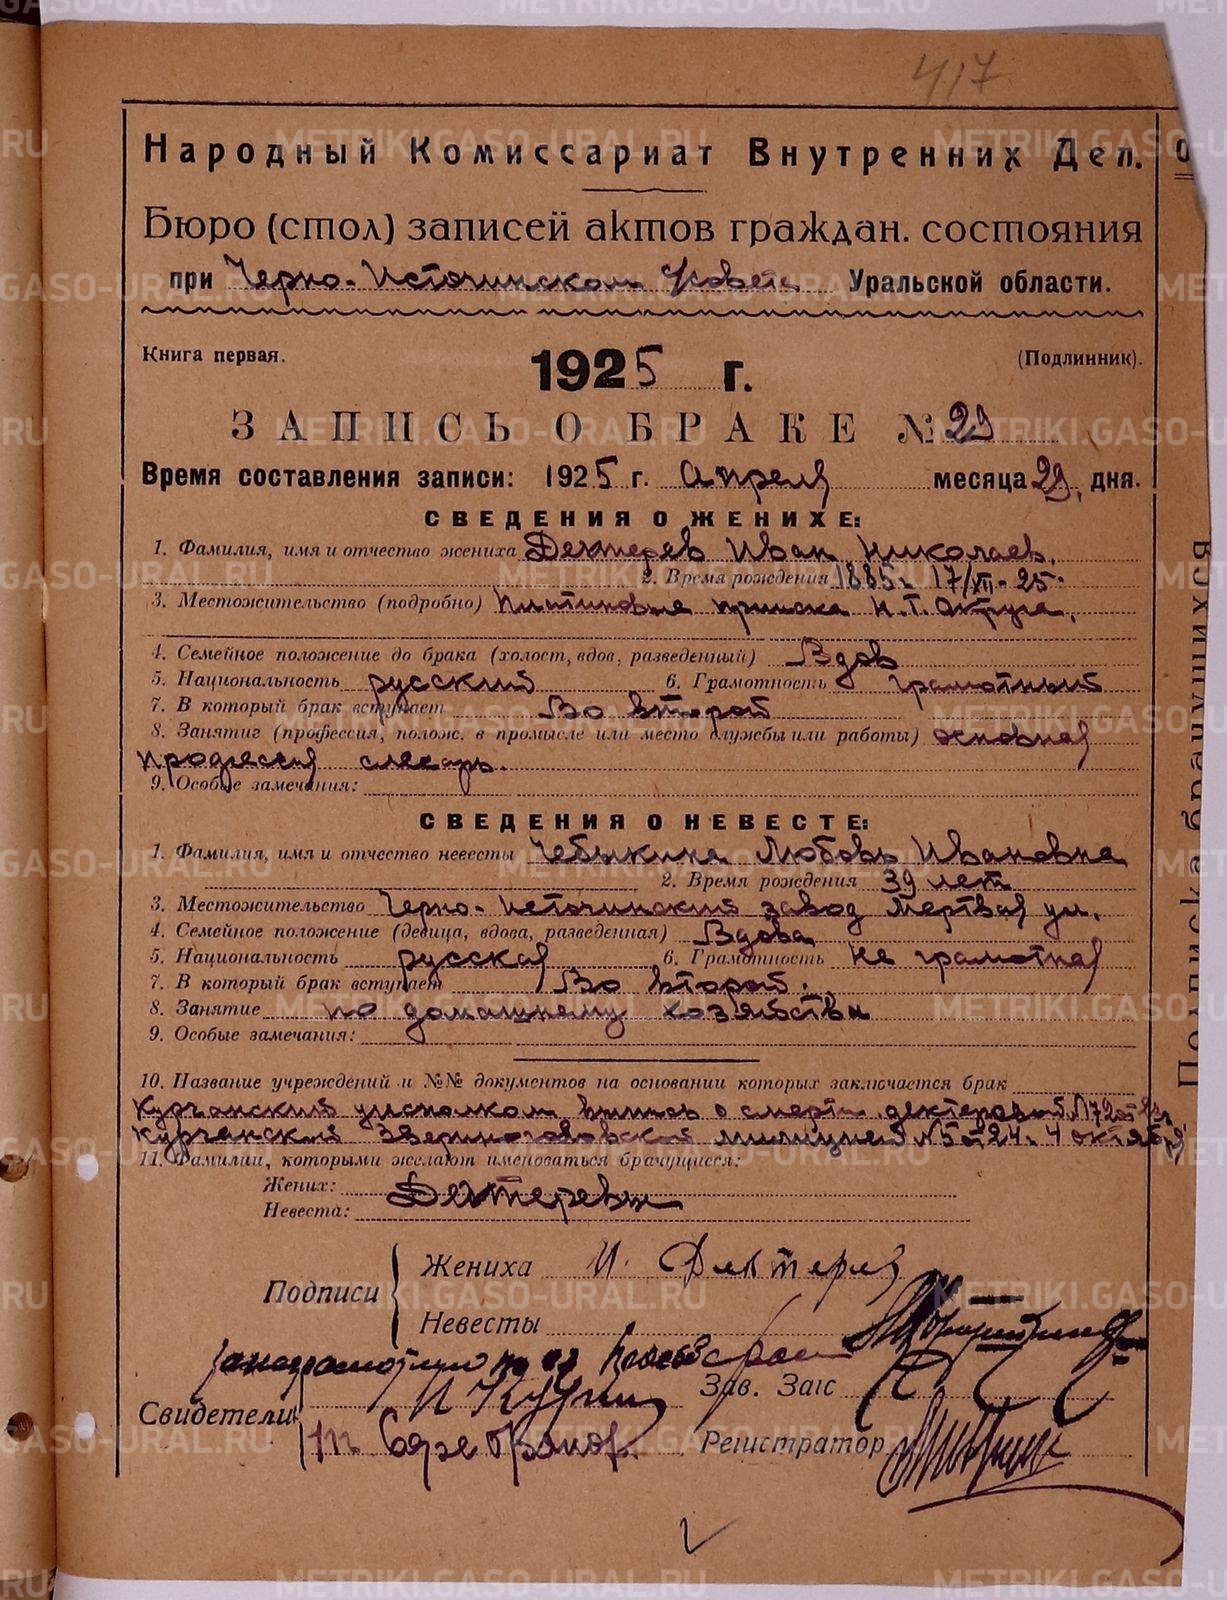 417
Народный Комиссариат Внутренних Дел.
Бюро (стол) записей актов граждан. состояния
при Черно-Источинском Уральской области.
Книга первая. 1925 г. (Подлинник).
ЗАПИСЬ О БРАКЕ № 29
Время составления записи: 1925 г. Апреля месяца 29, дня.
СВЕДЕНИЯ О ЖЕНИХЕ:
1. Фамилия, имя и отчество жениха Дехтерев Иван Николаев.
2. Время рождения 1885 г. 17/XII-25.
3. Местожительство (подробно) прииска Н.Т. Округа.
4. Семейное положение до брака (холост, вдов, разведенный) Вдов
5. Национальность русский 6. Грамотность грамотный
7. В который брак вступает Во второй
8. Занятие (профессия, полож. в промысле или место службы или работы) основная
профессия слесарь.
9. Особые замечания:
СВЕДЕНИЯ О НЕВЕСТЕ:
1. Фамилия, имя и отчество невесты Чебыкина Любовь Ивановна
2. Время рождения 39 лет
3. Местожительство Черно-Источинский завод Мертвая ул.
4. Семейное положение (девица, вдова, разведенная) Вдова
5. Национальность русская 6. Грамотность не грамотная
7. В который брак вступает Во второй.
8. Занятие по домашнему хозяйству
9. Особые замечания:
10. Название учреждений и №№ документов на основании которых заключается брак
о смерти
милицией № 5 24 4 октября
11. Фамилии, которыми желают именоваться брачущиеся:
Жених: Дехтеревы
Невеста:
Подписи
Жениха И. Дехтерев
Невесты
Зав. Загс
Свидетели
Регистратор
Подписка брачущихся
METRIKI.GASO-URAL.RU